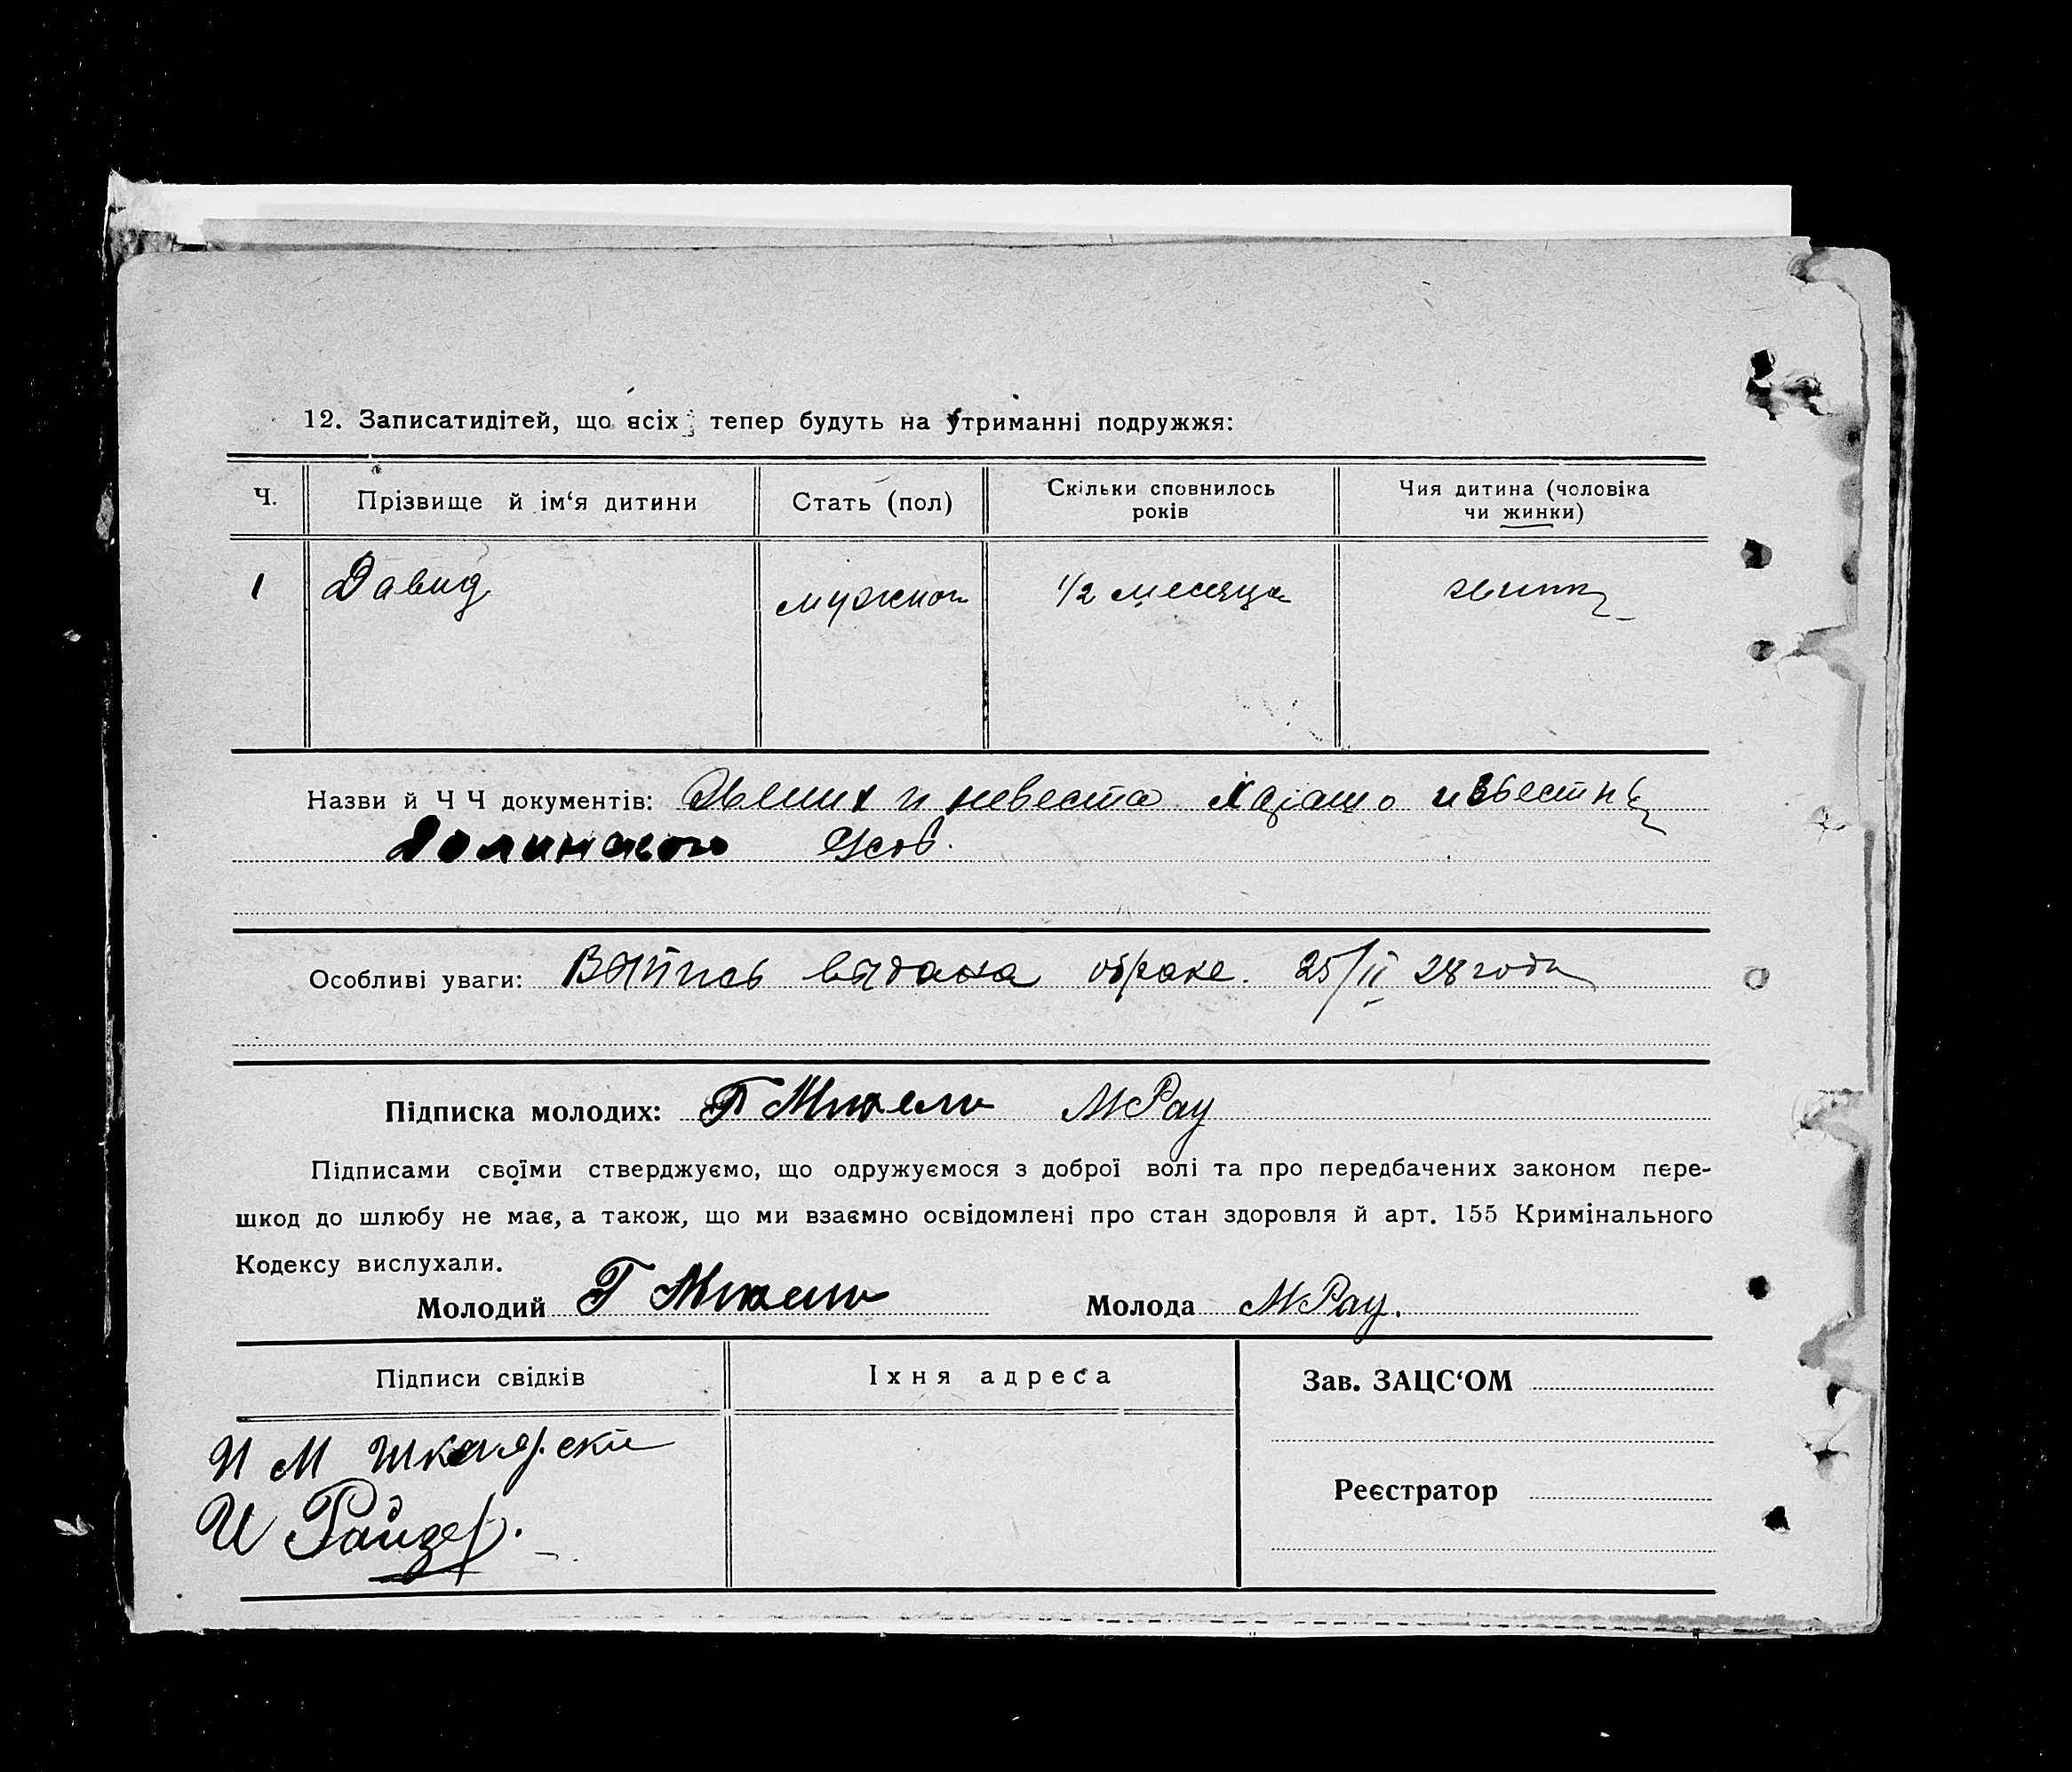 12. Записатидітей, що всіх тепер будуть на утриманні подружжя:
Ч. Прізвище й ім‘я дитини Стать (пол) Скільки сповнилось років Чия дитина (чоловіка чи жинки)
1 Давид мужской 1/2 месяца
Назви й Ч Ч документів: Жених и невеста известны
Особливі уваги: Витпись видана обраке. 25/II 28 года
Підписка молодих: Г М Рау
Підписами своїми стверджуємо, що одружуємося з доброї волі та про передбачених законом пере-
шкод до шлюбу не має, а також, що ми взаємно освідомлені про стан здоровля й арт. 155 Кримінального
Кодексу вислухали.
Молодий Г Молода М Рау.
Підписи свідків Їхня адреса Зав. ЗАЦС‘ОМ
И М
Реєстратор
И Райзер.